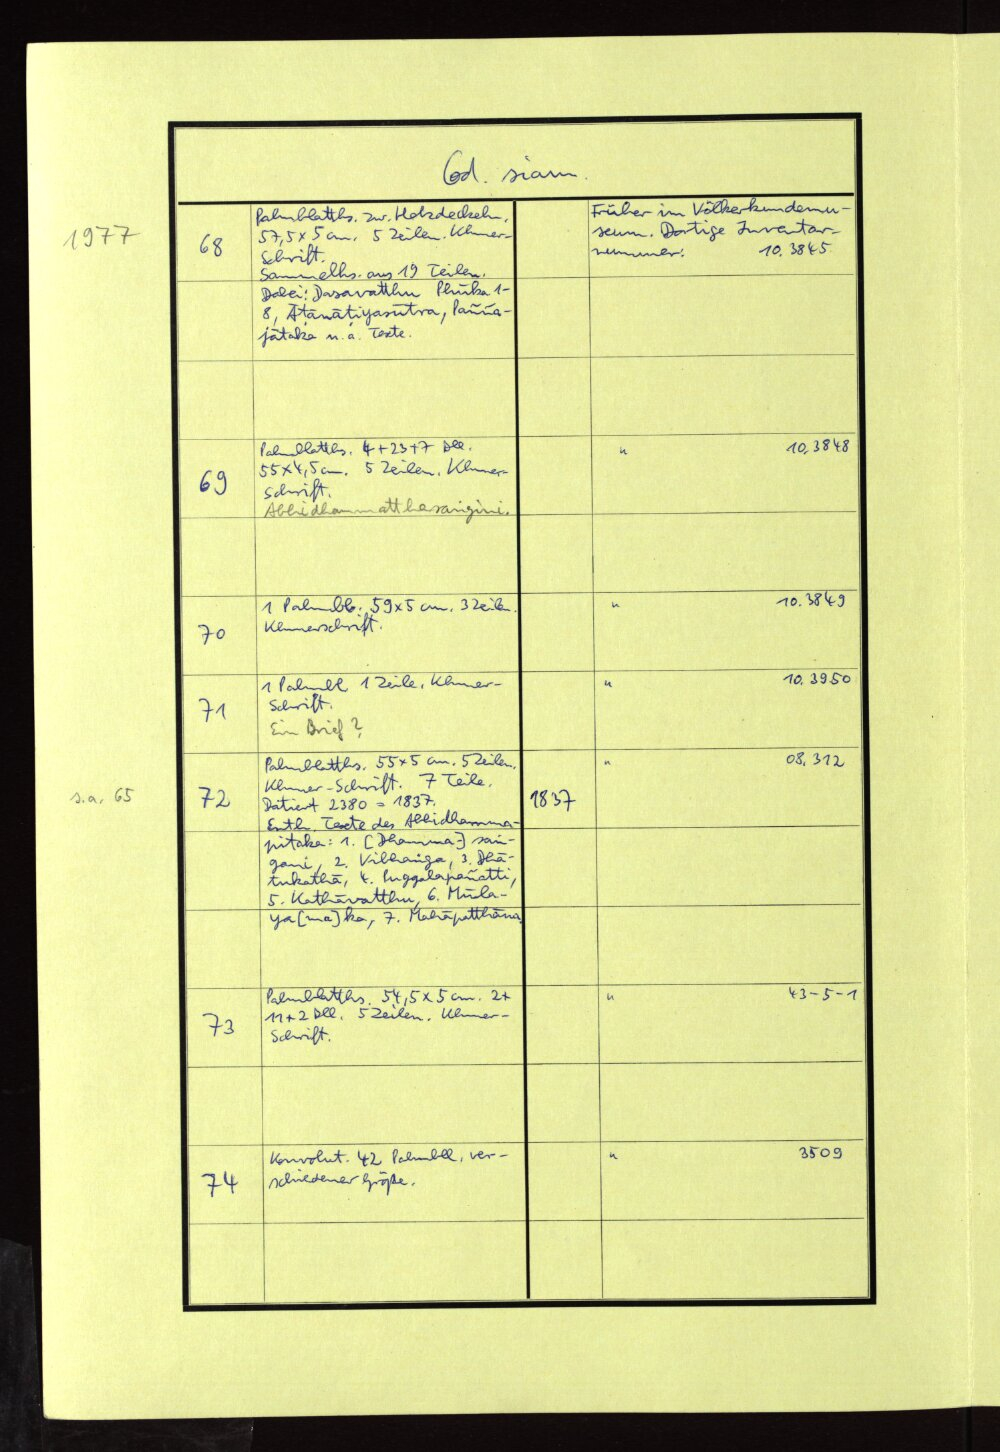 Cod. siam.
1977
68
Palmblatths. zw. Holzdeckeln.
57,5 x 5 cm. 5 Zeilen. Khmer-
Schrift.
Sammelhs. aus 19 Teilen.
Dabei: Dasavatthu Phūka 1-
8, Āṭānāṭiyasūtra, Paññā-
jātaka u. a. Texte.
Früher im Völkerkundemu-
seum. Dortige Inventar-
nummer: 10.3845
69
Palmblatths. 4+23+7 Bll.
55 x 4,5 cm. 5 Zeilen. Khmer-
Schrift.
Abhidhammatthasaṅgiṇi.
" 10.3848
70
1 Palmbl. 59 x 5 cm. 3 Zeilen.
Khmerschrift.
" 10.3849
71
1 Palmbl. 1 Zeile. Khmer-
Schrift.
Ein Brief?
" 10.3950
s.a. 65
72
Palmblatths. 55 x 5 cm. 5 Zeilen.
Khmer-Schrift. 7 Teile.
Datiert 2380 = 1837.
Enth. Texte des Abhidhamma-
pitaka: 1. [Dhamma-] saṅ-
gani, 2. Vibhaṅga, 3. Dhā-
tukathā, 4. Puggalapaññatti,
5. Kathāvatthu, 6. Mūla-
ya[ma]ka, 7. Mahāpatthāna.
1837
" 08.312
73
Palmblatths. 54,5 x 5 cm. 2+
11+2 Bll. 5 Zeilen. Khmer-
Schrift.
" 43-5-1
74
Konvolut. 42 Palmbll. ver-
schiedener Größe.
" 3509